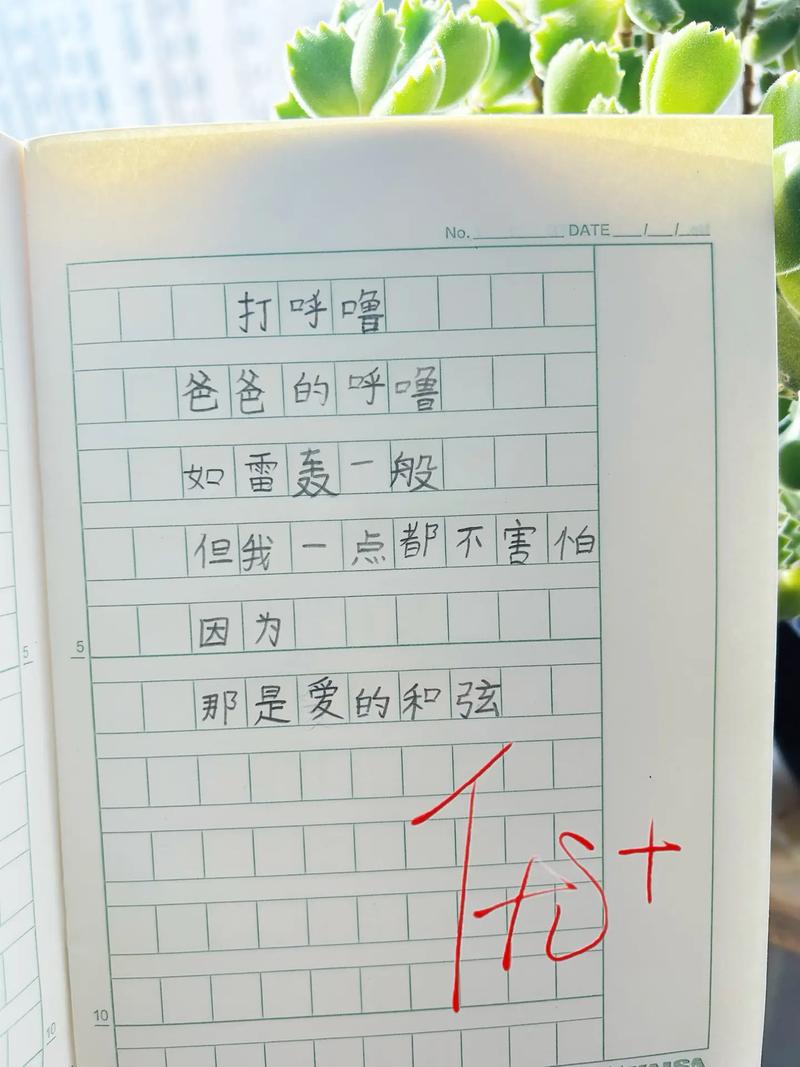 No. DATE / /
打呼噜
爸爸的呼噜
如雷轰一般
但我一点都不害怕
因为
5
5
那是爱的和弦
10
10